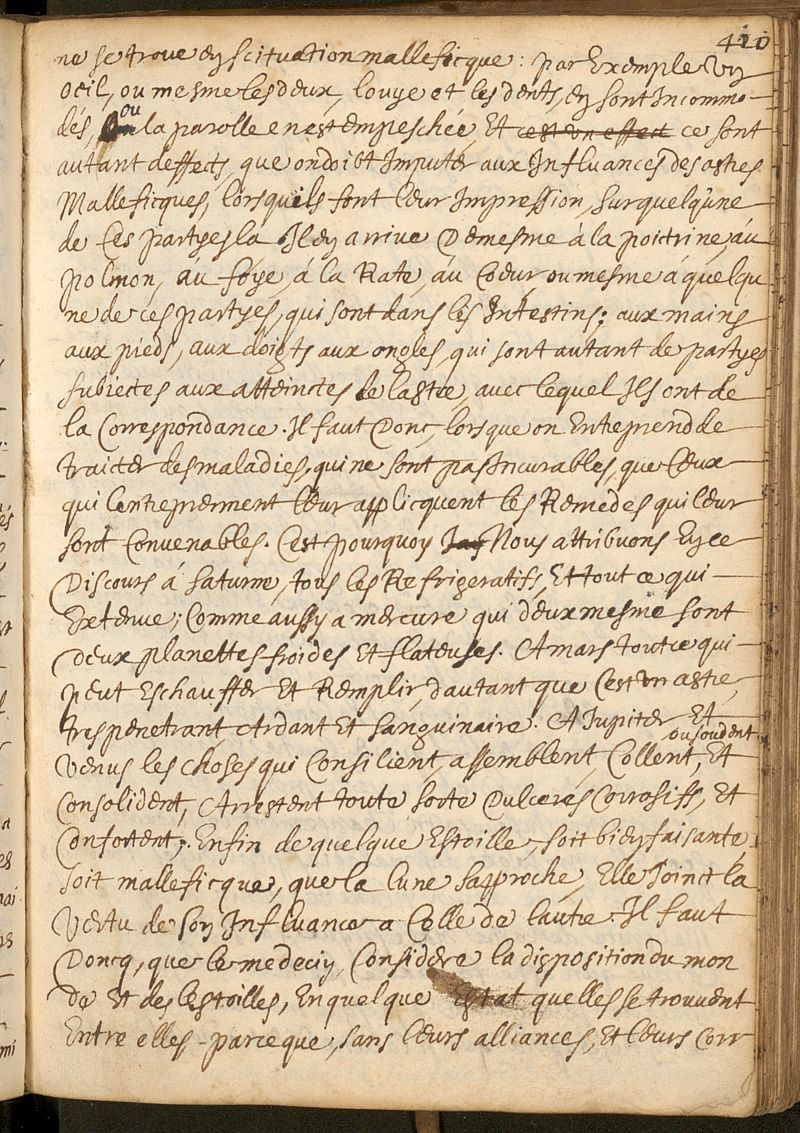 410
ne se trove en scituation malleficque : par Exemple un
oeil, ou mesme les deux, louye et les dents, en sont Incommo-
dés, ou la parolle en est empeschée, Et c'est un effect ce sont
autant deffects, que on doibt Imputer aux Influances des astres
Malleficques, lorsquils font leur Impression, sur quelq'une
de ces partyes la Il en arrive De mesme à la poictrine, au
polmon, au foye, à la Rate, au Coeur, ou mesme à quelqu
ne de ces partyes, qui sont dans les Intestins ; aux mains
aux pieds, aux doigts aux ongles, qui sont autant de partyes
subiectes aux atteinctes de lastre, avec lequel Ils ont de
la Correspondance. Il faut Donc, lorsque on Entreprend de
traicter des maladies, qui ne sont pas Incurables, que Ceux
qui lentreprennent Leur applicquent les Remedes qui leur
sont Convenables. C'est pourquoy Nous attribuons En ce
Discours á Saturne, tous les Refrigeratifs, Et tout ce qui
Extenue ; Comme aussy a mercure qui d'eux mesme sont
deux planettes froides Et flateuses. A mars tout ce qui
peut Eschauffer Et Remplir, dautant que C'est un astre,
tres penetrant Ardant Et sanguinaire. A Jupiter Et
ou soudent
Venus les choses qui Consilient, assemblent, Collent, Et
Consolident, Arrestent toute sorte Dulceres Corrosifs, Et
Confortent ; Enfin de quelque Estoille, soit bien faisante,
soit malleficque, que la lune sapproche, Elle Joinct la
Vertu de son Influance a Celle de lautre. Il faut
Doncq, que le medecin, Considere la disposition du mon
de Et des lestoilles, En quelque Estat quelles se trouvent
Entre elles - parce que, sans leurs alliances, Et leurs Corr